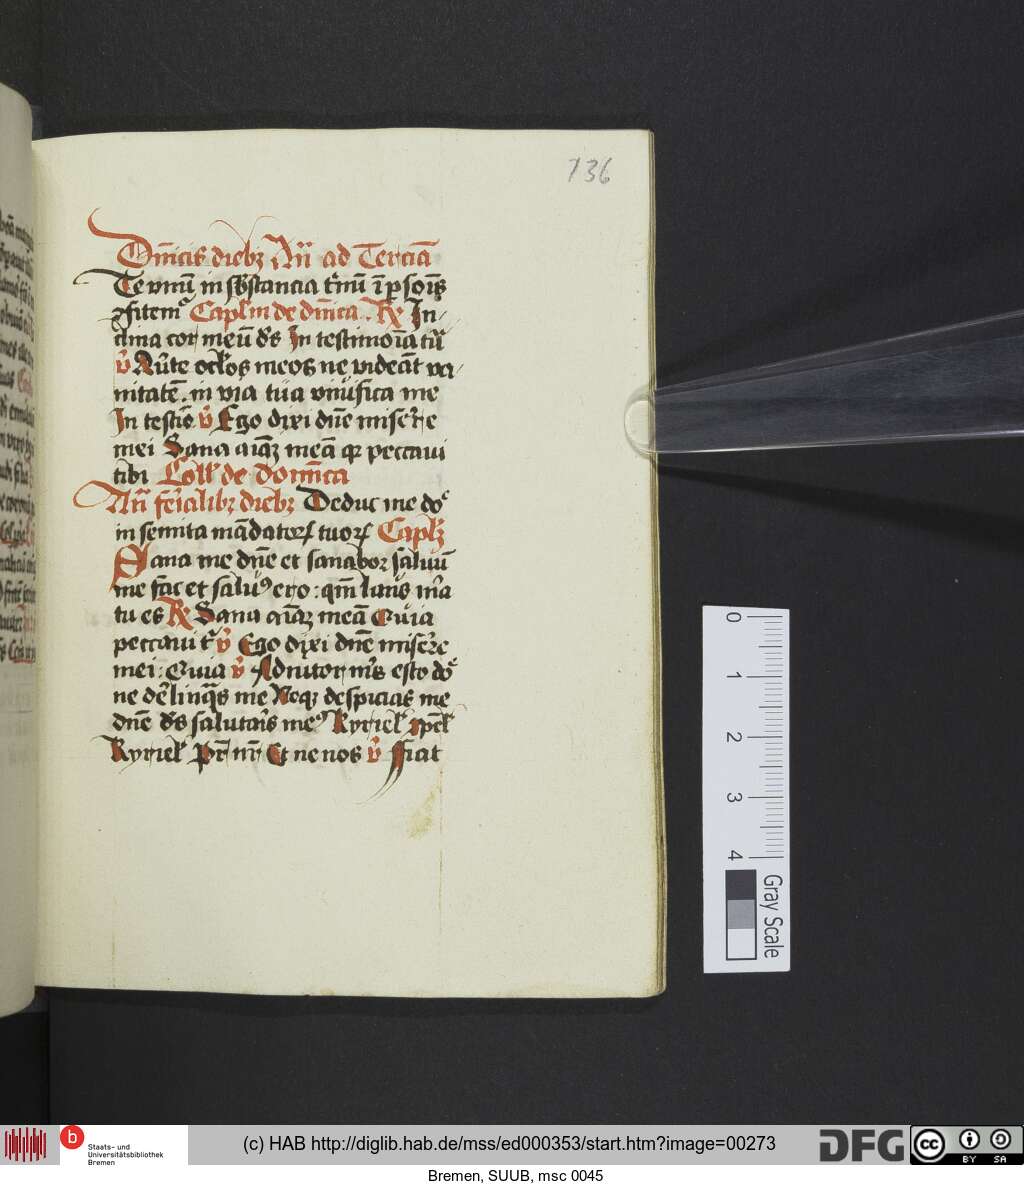 136
Dn̄icis dieb⁊ An̄ ad Terciā
Te vnū in sb̄stancia t̓nū ī ꝑsoīs
ꝯfitem᷒ Capl̄m de dn̄ica. R̸ In
clina cor meū ds̄ In testimoīa tū
v̄ Au̓te ocl̓os meos ne videāt va
nitatē. in via tua viuifica me
In testīe v̄ Ego dixi dn̄e mise̓re
mei Sana aīaꝫ meā qꝛ peccaui
tibi Coll̄ de domīca
An̄ fe̓ialibꝫ diebꝫ Deduc me do᷒
in semita mādatoꝝ tuoꝝ Capl̄ꝫ
Sana me dn̄e et sanaboꝛ saluū
me fac et salu᷒ ero : qm̄ laus m̄a
tu es R̸ Sana aīaꝫ meā Quia
peccaui t̓ v̄ Ego dixi dn̄e mise̓re
mei : Quia v̄ Adiutor m̓s esto do᷒
ne de̓linq̄s me Neqꝫ despicias me
dn̄e ds̄ salutar̓s me᷒ Kyriel̓ xp̄el̓
Kyriel̓ Pr̄ nr̄ Et ne nos v̄ Fiat
0
1
2
3
4
Gray Scale
Staats- und
Universitätsbibliothek
Bremen
(c) HAB http://diglib.hab.de/mss/ed000353/start.htm?image=00273
DFG
cc BY SA
Bremen, SUUB, msc 0045